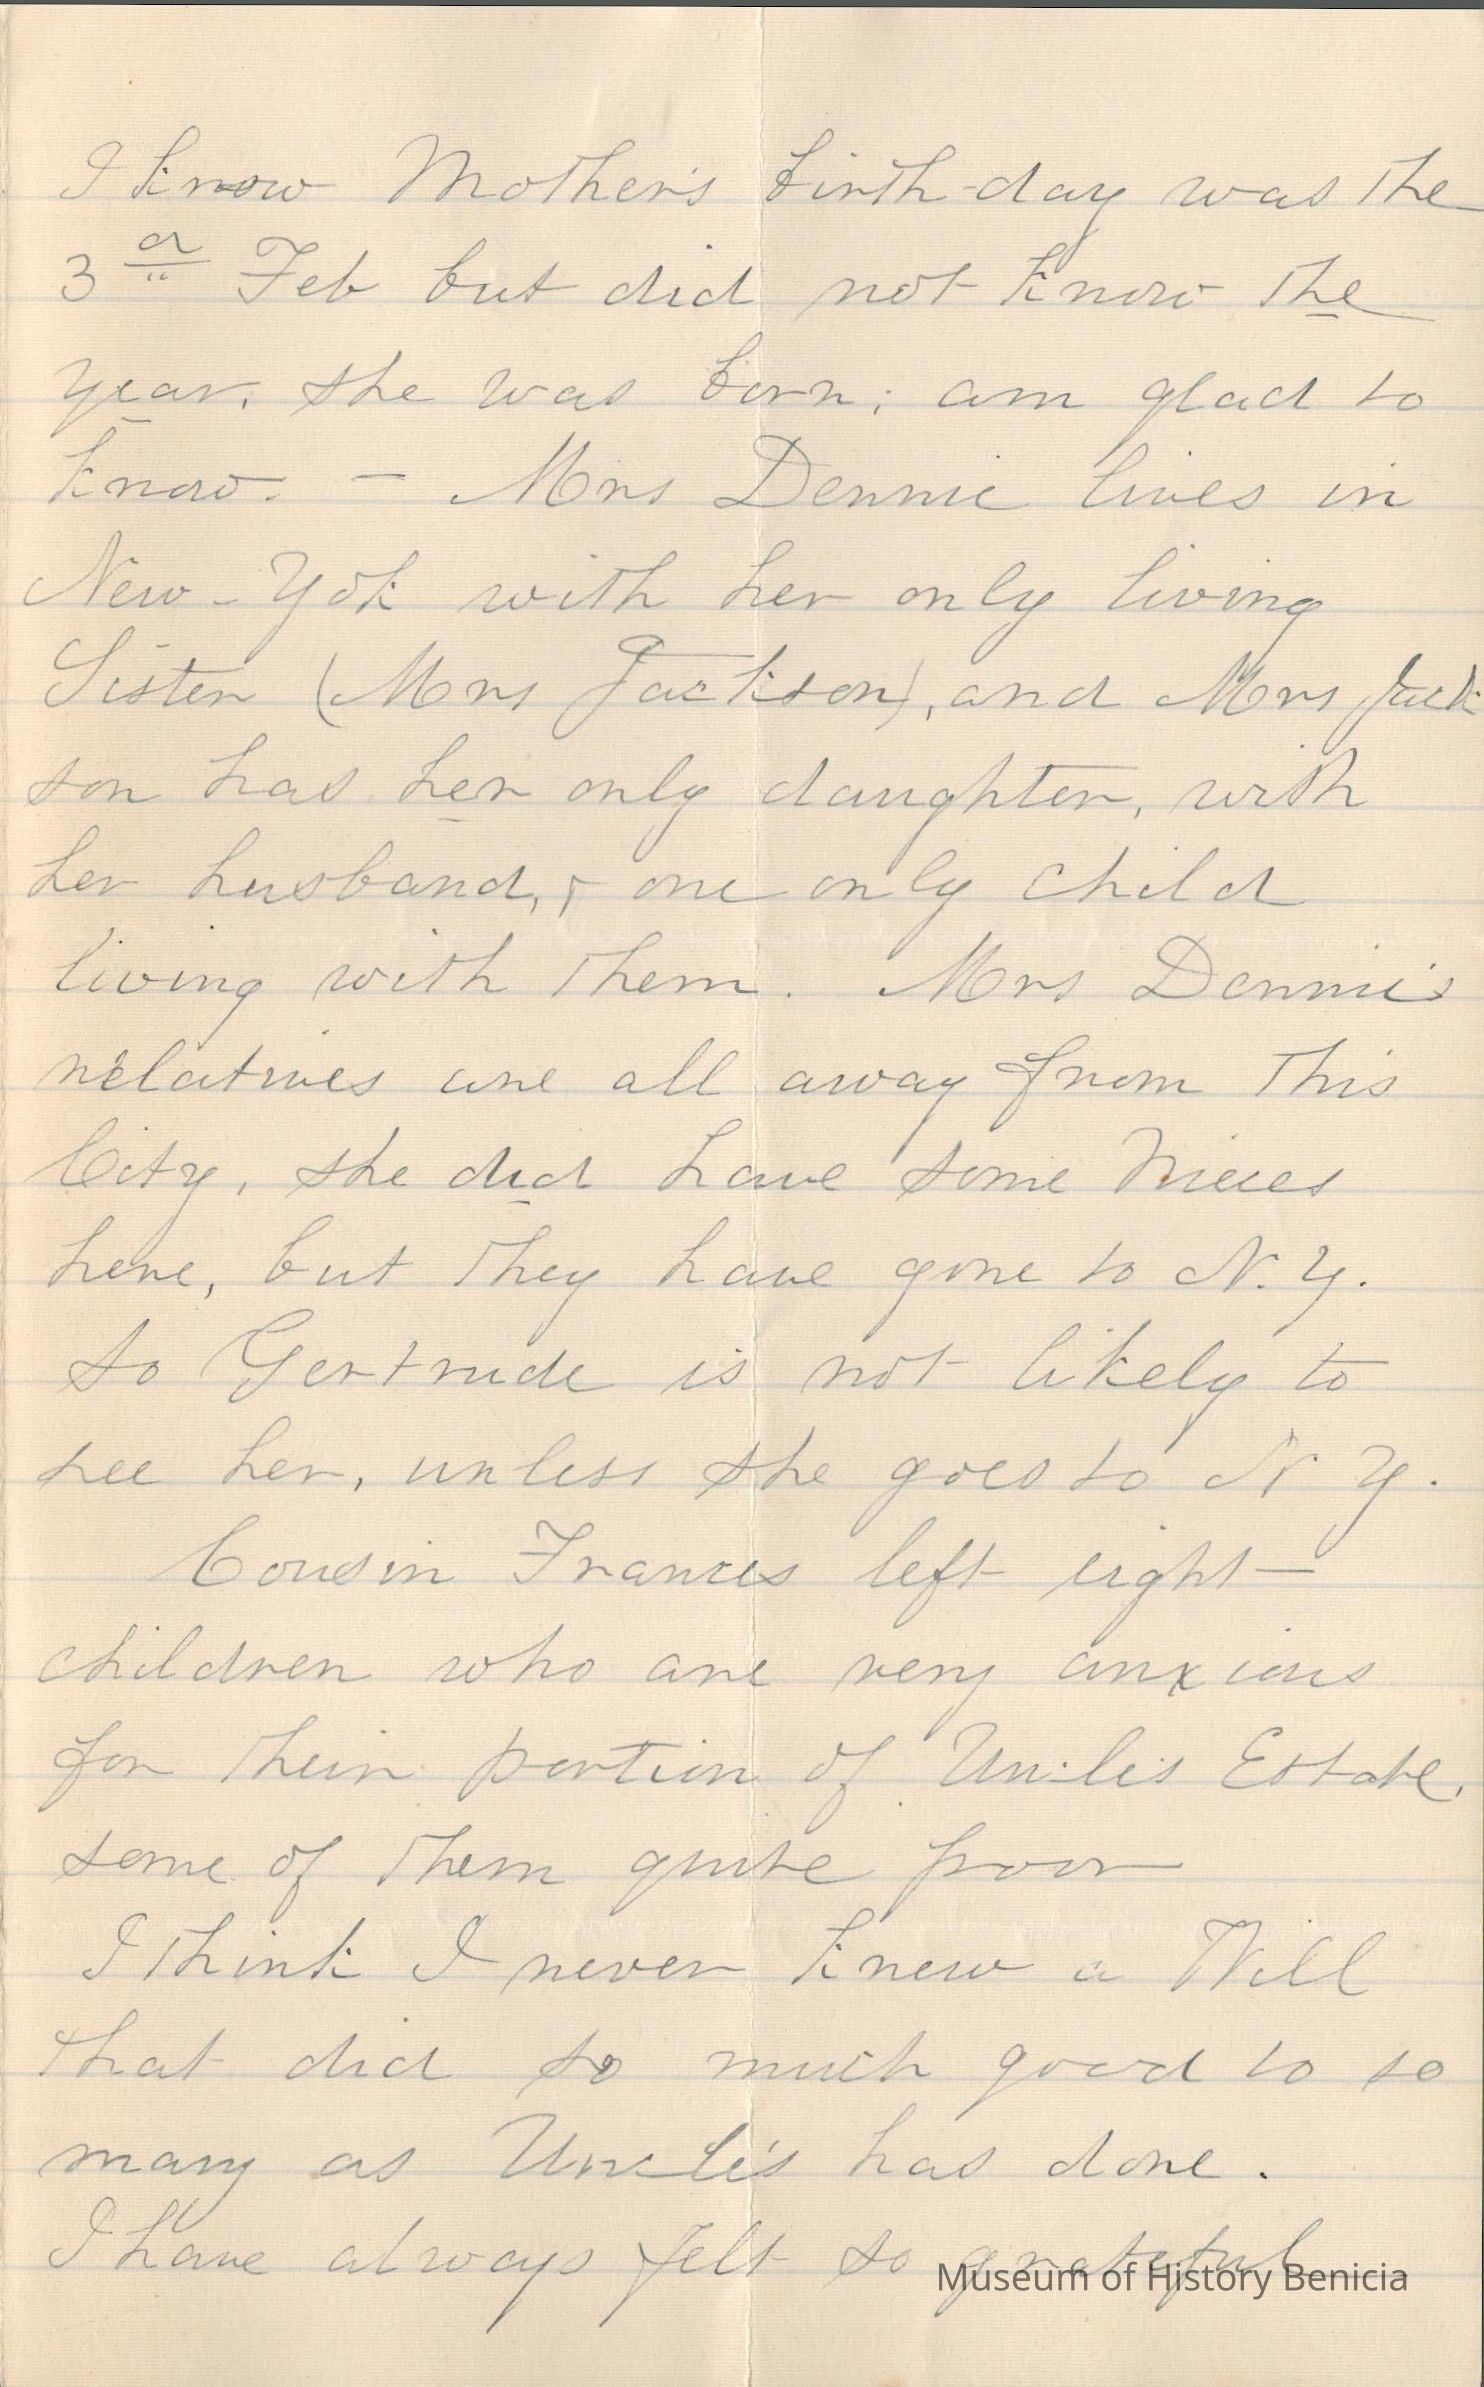 I know Mother's birth-day was the
3d Feb but did not know the
year, she was born; am glad to
know. – Mrs Dennie lives in
New-Yok with her only living
Sister (Mrs Jackson), and Mrs Jack
son has her only daughter, with
her husband, & one only child
living with them. Mrs Dennie's
relatives are all away from this
City, she did have some Nieces
here, but they have gone to N.Y.
so Gertrude is not likely to
see her, unless she goes to N Y.
Cousin Frances left eight–
children who are very anxious
for their portion of Uncle's Estate,
some of them quite poor
I think I never knew a Will
that did so much good to so
many as Uncle's has done.
I have always felt so grateful
Museum of History Benicia